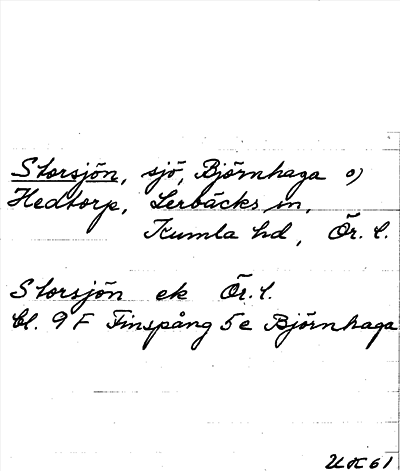 Storsjön, sjö, Björnhaga o)
Hedtorp, Lerbäcks sn,
Kumla hd, Ör. l.
Storsjön ek Ör. l.
bl. 9 F Finspång 5 e Björnhaga
UK 61